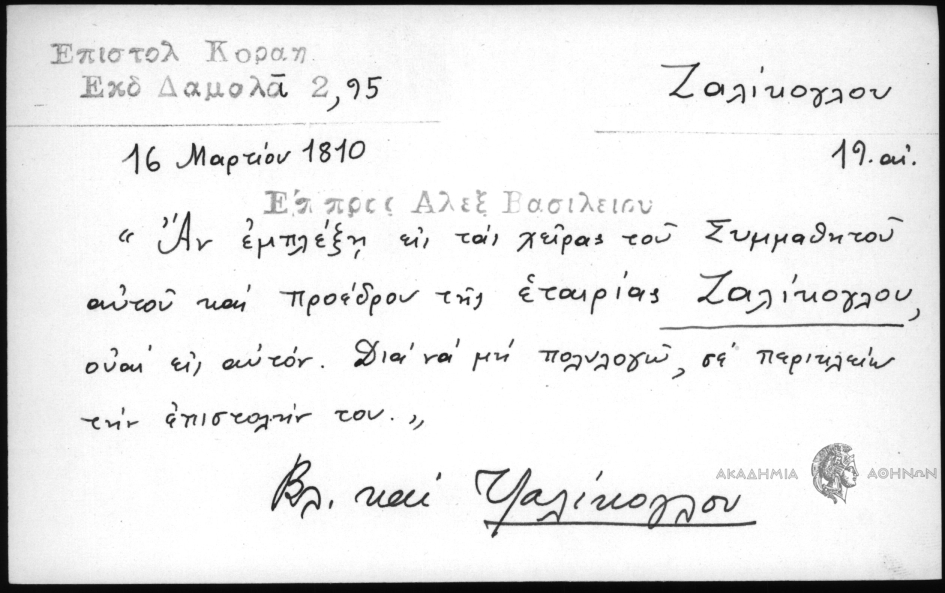 Επιστολ Κοραη
Εκδ Δαμαλᾶ 2,95
Ζαλίκογλου
16 Μαρτίου 1810
19. αἰ.
Επ προς Αλεξ Βασιλειου
"Ἄν ἐμπλέξῃ εἰς τάς χεῖρας τοῦ Συμμαθητοῦ
αὐτοῦ καί προέδρου τῆς ἑταιρίας Ζαλίκογλου,
οὐαί εἰς αὐτόν. Διά νά μή πολυλογῶ, σέ περικλείω
τήν ἐπιστολήν του.„
Βλ. καί Τζαλίκογλου
ΑΚΑΔΗΜΙΑ ΑΘΗΝΩΝ